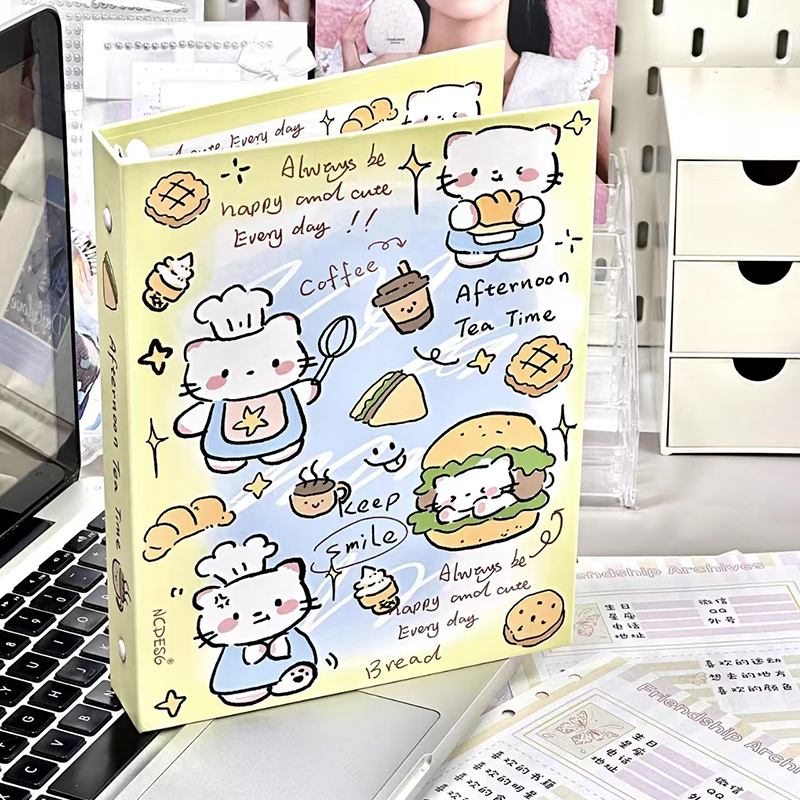 Every day
Always be
happy and cute
Every day !!
Coffee
Afternoon
Tea Time
Keep
smile
Always be
happy and cute
Every day
Bread
NCDESG®
Afternoon Tea Time
Friendship Archives
生日
星座
电话
地址
微信
QQ
外号
喜欢的运动
想去的地方
喜欢的颜色
Friendship Archi
生日
星座
电话
地址
微信
QQ
外号
喜欢的书籍
喜欢的明星